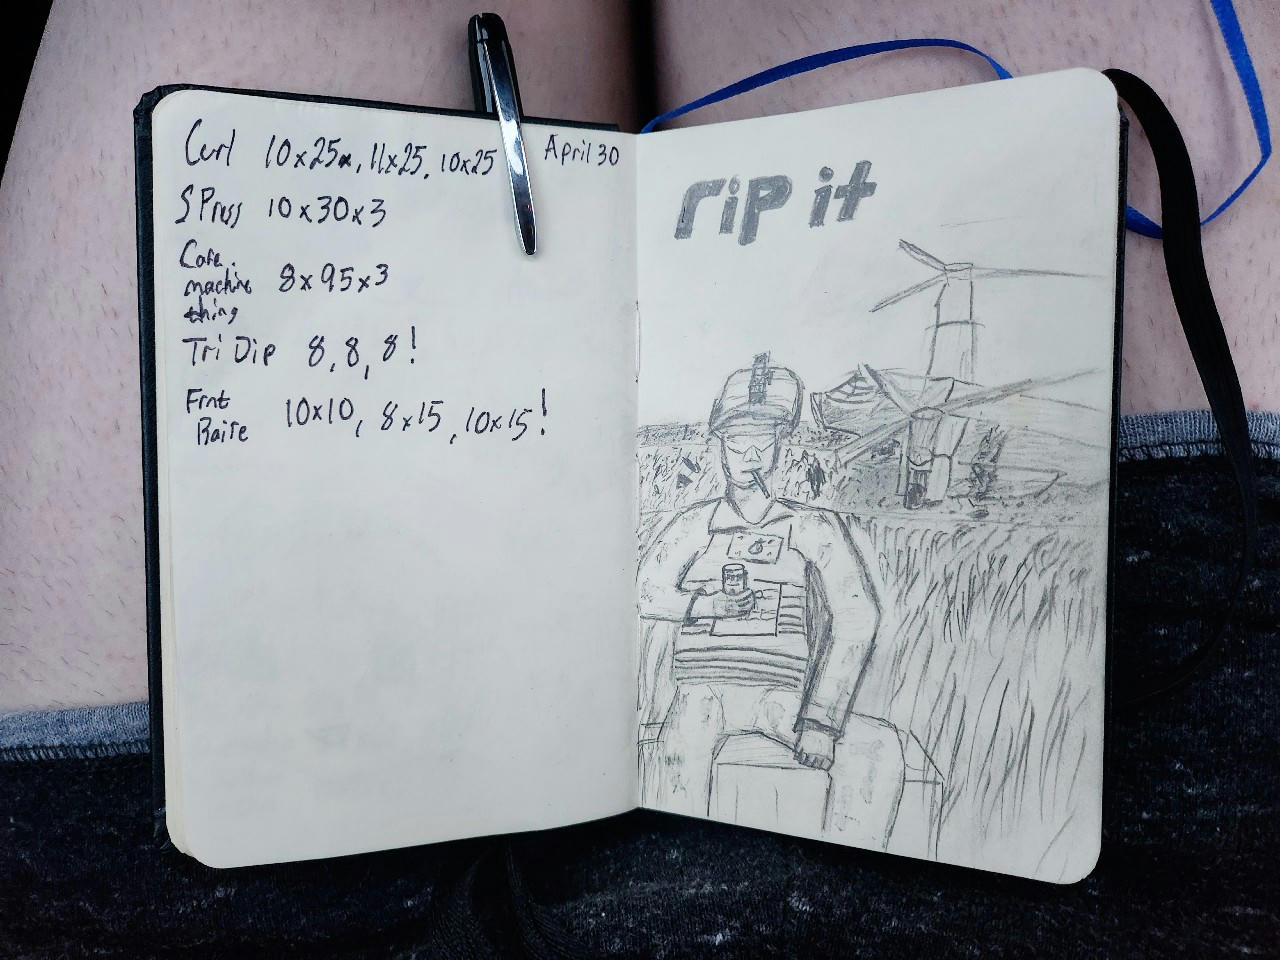 Curl 10x25, 11x25, 10x25 April 30
S Press 10x30x3
Core machine thing 8x95x3
Tri Dip 8, 8, 8!
Frnt Raise 10x10, 8x15, 10x15!
rip it